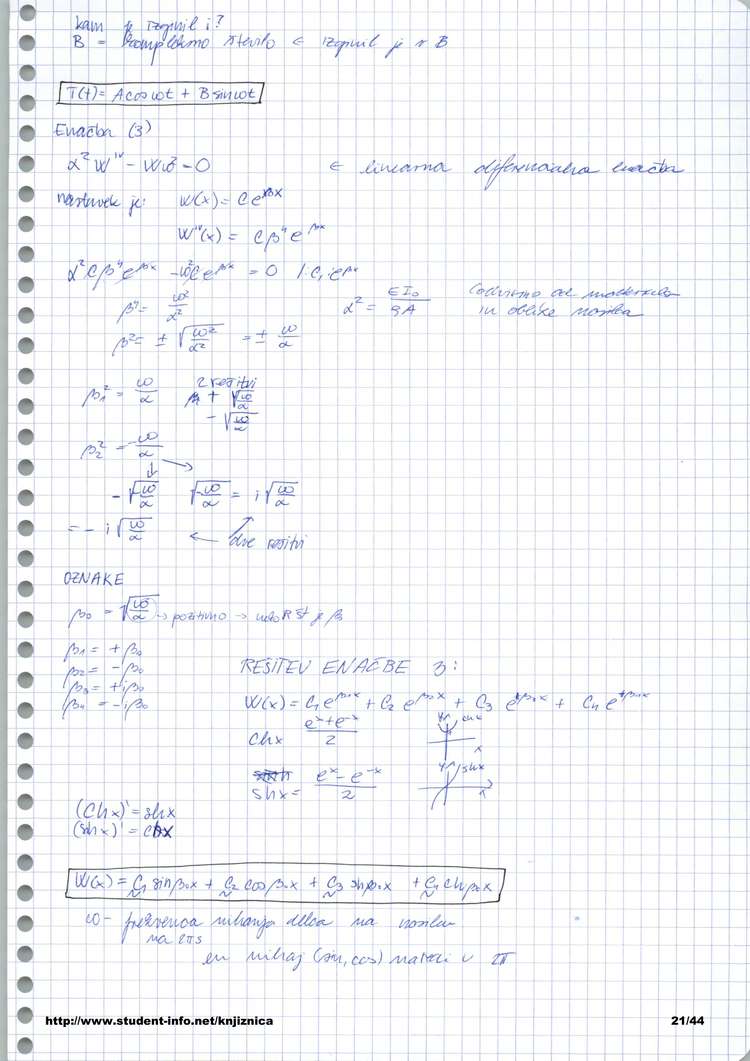 kam je izginil i?
B = kompleksno število ∈ izginil je v B
T(t) = A cos ωt + B sin ωt
Enačba (3)
α² W^IV − Wω² = 0 ∈ linearna diferencialna enačba
nastavek je: W(x) = C e^βx
W^IV(x) = Cβ⁴ e^βx
α² Cβ⁴ e^βx − ω² C e^βx = 0 /:C, :e^βx
β⁴ = ω²/α² α² = EI₀/ρA (odvisno od materiala
β² = ± √(ω²/α²) = ± ω/α in oblike nosilca
β₁² = ω/α 2 rešitvi β₁ + √(ω/α)
− √(ω/α)
β₂² = −ω/α
− √(−ω/α) √(−ω/α) = i √(ω/α)
= − i √(ω/α) ← dve rešitvi
OZNAKE
β₀ = √(ω/α) → pozitivno → je β
β₁ = + β₀
β₂ = − β₀
β₃ = + iβ₀
β₄ = − iβ₀
REŠITEV ENAČBE 3:
W(x) = C₁ e^β₁x + C₂ e^β₂x + C₃ e^β₃x + C₄ e^β₄x
chx (e^x + e^−x)/2 y chx x
shx = (e^x − e^−x)/2 y shx x
(chx)' = shx
(shx)' = chx
W(x) = C₁ sin β₀x + C₂ cos β₀x + C₃ sh β₀x + C₄ ch β₀x
ω – frekvenca nihanja delca na nosilcu
na 2π s
en nihaj (sin, cos) naredi v 2π
http://www.student-info.net/knjiznica 21/44